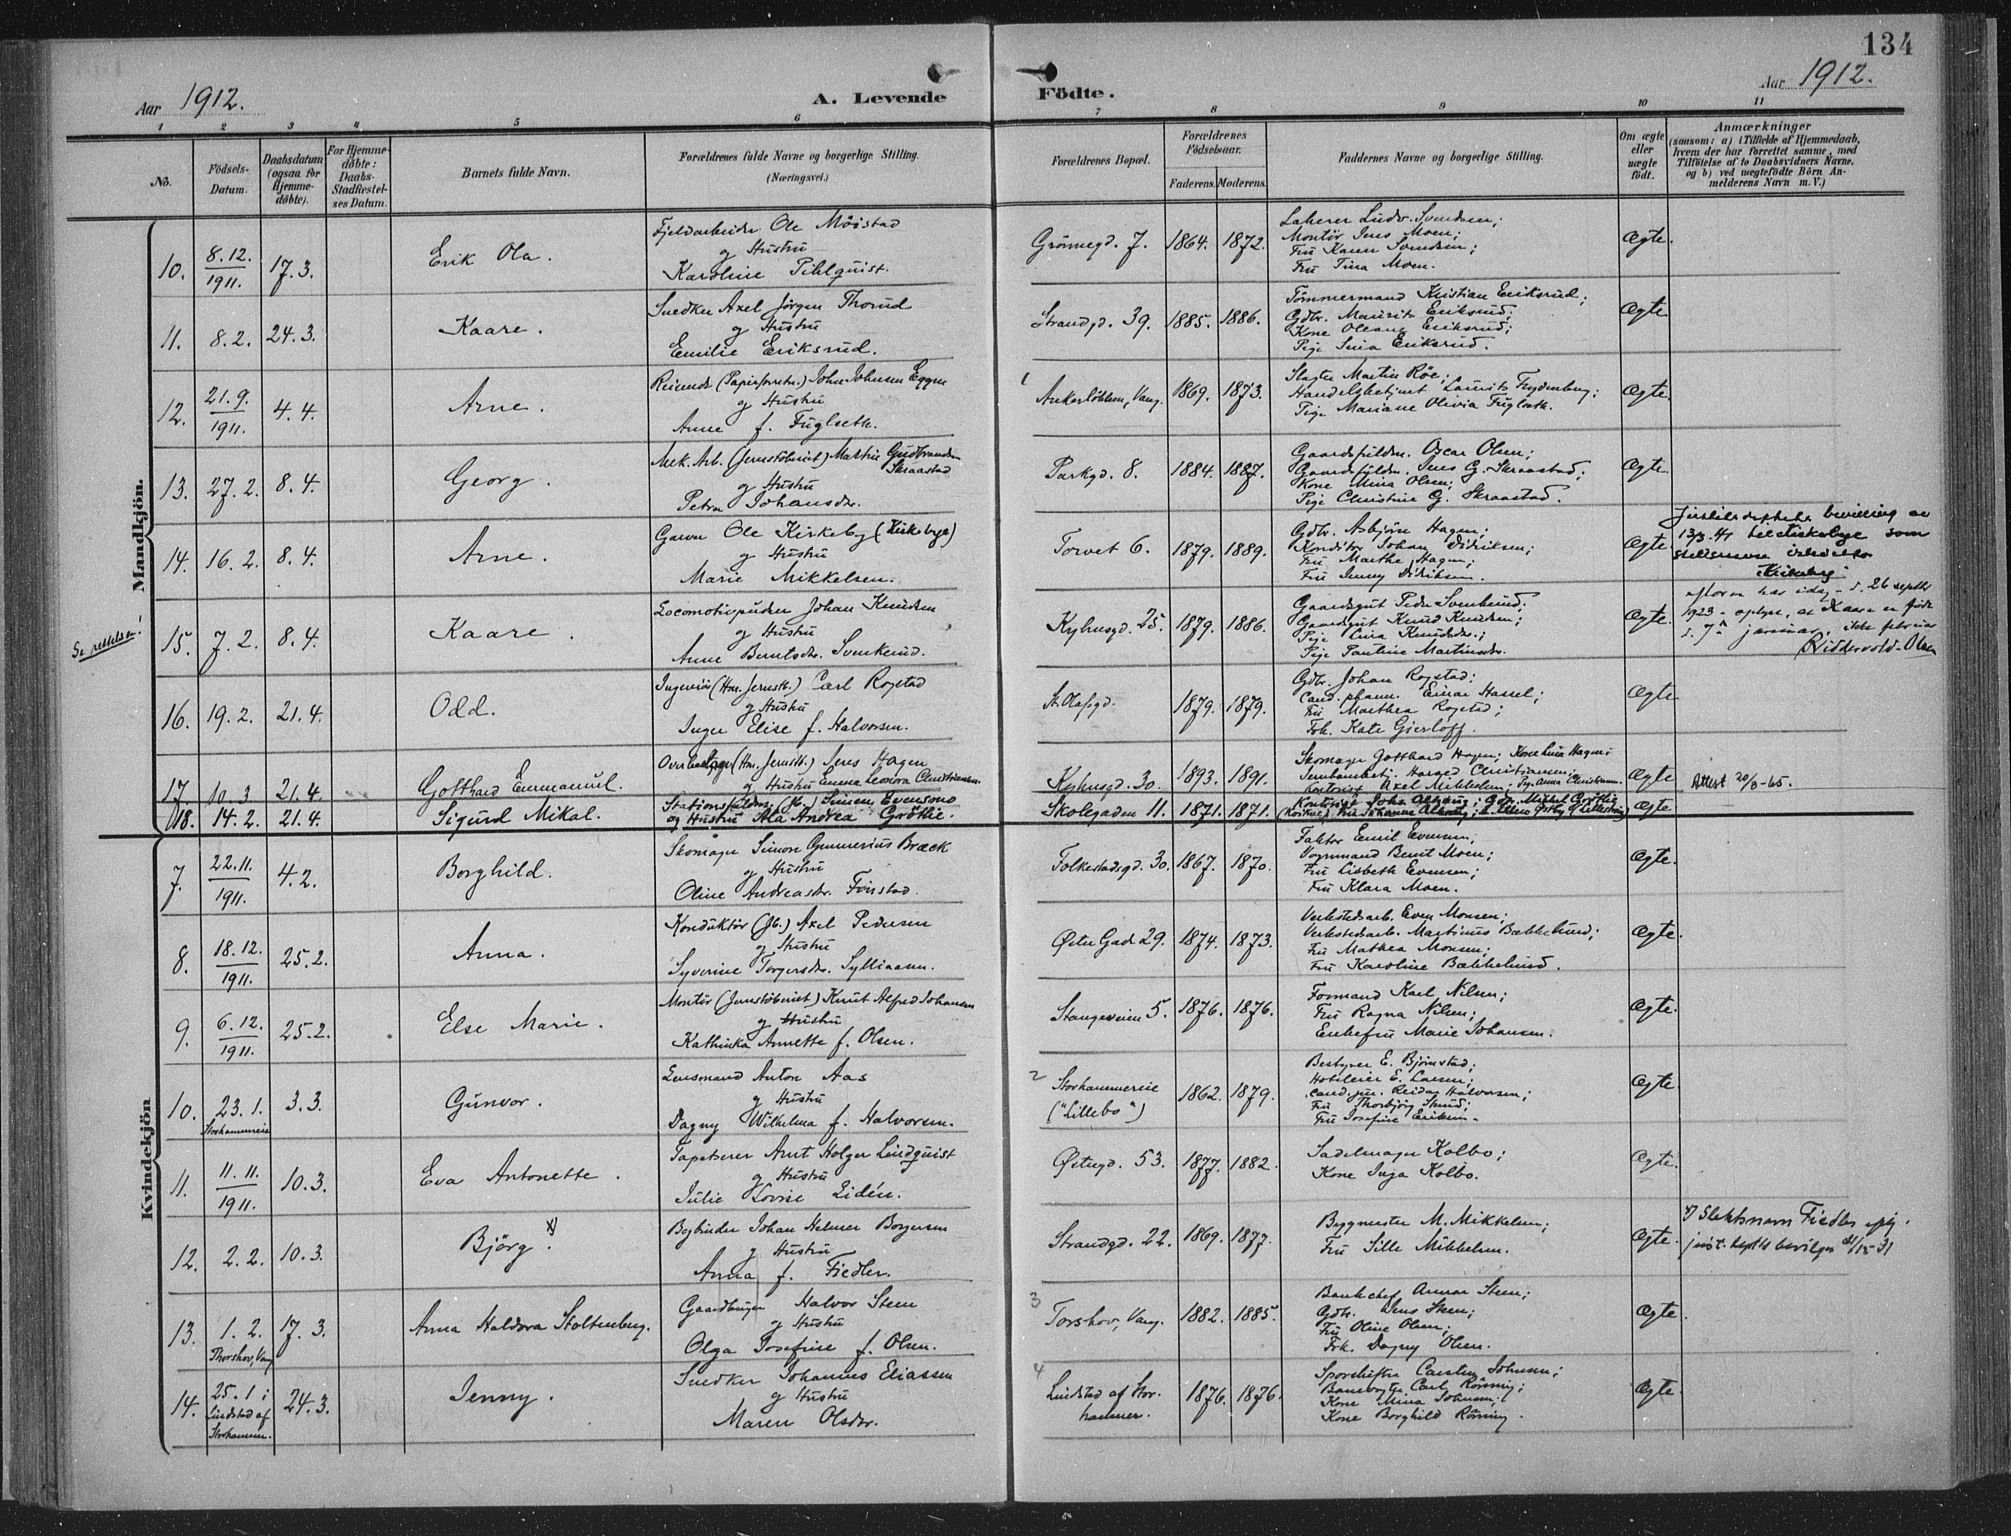 134
Aar 1912.
A. Levende Födte.
Aar 1912.
1 2 3 4 5 6 7 8 9 10 11
No.
Födsels-Datum.
Daabsdatum (ogsaa for Hjemme-döbte).
For Hjemme-döbte: Daabs-Stadfæstel-ses Datum.
Barnets fulde Navn.
Forældrenes fulde Navne og borgerlige Stilling.
(Næringsvei.)
Forældrenes Bopæl.
Forældrenes Födselsaar.
Faderens. Moderens.
Faddernes Navne og borgerlige Stilling.
Om ægte eller uægte födt.
Anmærkninger
(saasom: a) i Tilfælde af Hjemmedaab,
hvem der har forrettet samme, med
Tilföielse af to Daabsvidners Navne,
og b) ved uægtefödte Börn An-
melderens Navn m. V.)
Mandkjön.
10. 8.12. 1911. 17.3. Erik Ola.
Fjeldarbeider Ole Möistad
og Hustru
Karoline Pihlquist.
Grönnegd. 7. 1864. 1872.
Montör Jens Moen;
Fru Karen Svendsen;
Fru Tina Moen.
Ægte.
11. 8.2. 24.3. Kaare.
Snedker Axel Jörgen Thorud
og Hustru
Emilie Eriksrud.
Strandgd. 39. 1885. 1886.
Tömmermand Kristian Eriksrud;
Gdbr. Maurits Eriksrud;
Kone Oleana Eriksrud;
Pige Sina Eriksrud.
Ægte
12. 21.9. 1911. 4.4. Arne.
Reisende (Papirforretn.) John Johnsen Eggen
og Hustru
Anne f. Fuglseth.
1 Ankerlökken, Vang. 1869. 1873.
Slagter Martin Röe;
Handelsbetjent Laurits Frydenberg;
Pige Mariane Olivia Fuglseth.
Ægte.
13. 27.2. 8.4. Georg.
Mek. Arb. (Jernstöberiet) Martin Gudbrandsen
Skraastad
og Hustru
Petra Johansdr.
Parkgd. 8. 1884. 1887.
Gaardsfuldm. Oscar Olsen;
Gaardsfuldm. Jens G. Skraastad;
Kone Mina Olsen;
Pige Christine G. Skraastad.
Ægte.
14. 16.2. 8.4. Arne.
Garver Ole Kirkeby (Kirkebye)
og Hustru
Marie Mikkelsen.
Torvet 6. 1879. 1889.
Gdbr. Asbjörn Hagen;
Konditor Johan Didriksen;
Fru Marthe Hagen;
Fru Jenny Didriksen.
Ægte.
bevilling av
som
Kirkeby
Se rettelsen!
15. 7.2. 8.4. Kaare.
Locomotivpudser Johan Knudsen
og Hustru
Anne Berntsdr. Svenkerud.
Kyhusgd. 25. 1879. 1886.
Gaardsgut Peder Svenkerud;
Gaardsgut Knud Knudsen;
Pige Lina Knudsdr.;
Pige Pauline Martinsdr.
Ægte.
har idag - d. 26 septbr
1923 - oplyst, at Kaare er födt
d. 7de januar, ikke februar
Riddervold-Olsen
16. 19.2. 21.4. Odd.
Ingeniör (Ham. Jernstb.) Carl Rogstad
og Hustru
Inger Elise f. Halvorsen.
St. Olafsgd. 1879. 1879.
Gdbr. Johan Rogstad;
Cand. pharm. Einar Hassel;
Fru Marthea Rogstad;
Frk. Kate Gierloff.
Ægte
17 10.3 21.4. Gotthard Emmanuel.
(Ham. Jernstb.) Jens Hagen
og Hustru Emma Leonora Christiansen.
Kyhusgd. 30. 1893. 1891.
Skomager Gotthard Hagen; Kone Lina Hagen;
Jernbanebetj. Harald Christiansen;
Kontorist Axel Mikkelsen; Pg. Anna Christiansen.
Ægte
Attest 20/3-65.
18. 14.2. 21.4. Sigurd Mikal.
Stationsfuldm. (Jb.) Simen Evensen
og Hustru Ala Andrea Gröthe.
Skolegaden 11. 1871. 1871.
Ægte
Kvindekjön
7. 22.11. 1911. 4.2. Borghild.
Skomager Simon Gunnerius Bræck
og Hustru
Oline Andreasdr. Finstad.
Folkestadsgd. 30. 1867. 1870.
Faktor Emil Evensen;
Vognmand Bernt Moen;
Fru Lisbeth Evensen;
Fru Klara Moen.
Ægte.
8. 18.12. 1911. 25.2. Anna.
Konduktör (Jb.) Axel Pedersen
og Hustru
Syverine Torgersdr. Sylliaasen.
Øster Gad 29. 1874. 1873.
Verkstedsarb. Even Monsen;
Verkstedsarb. Martinus Bækkelund;
Fru Mathea Monsen;
Fru Karoline Bækkelund.
Ægte.
9. 6.12. 1911. 25.2. Else Marie.
Montör (Jernstöberiet) Knut Alfred Johansen
og Hustru
Kathinka Annette f. Olsen.
Stangeveien 5. 1876. 1876.
Formand Karl Nilsen;
Fru Ragna Nilsen;
Enkefru Marie Johansen.
Ægte.
10. 23.1. Storhammereie 3.3. Gunvor.
Lensmand Anton Aas
og Hustru
Dagny Wilhelma f. Halvorsen.
2 Storhammereie
("Lillebo") 1862. 1879.
Bestyrer E. Björnstad;
Hoteleier E. Larsen;
Cand. jur. Reidar Halvorsen;
Fru Thorbjörg Skard;
Fru Josefine Eriksen.
Ægte.
11. 11.11. 1911. 10.3. Eva Antonette.
Tapetserer Arnt Holger Lindquist
og Hustru
Julie Lovise Lidén.
Østregd. 53. 1877. 1882.
Sadelmager Kolbo;
Kone Inga Kolbo.
Ægte.
12. 2.2. 10.3. Björg. x)
Bogbinder Johan Helmer Borgersen
og Hustru
Anna f. Fiedler.
Strandgd. 22. 1869. 1877.
Byggmester M. Mikkelsen;
Fru Sille Mikkelsen.
Ægte.
x) Slektsnavn Fiedler iflg.
just. dept's bevilgn
13. 1.2. Thorshov, Vang 17.3. Anna Haldora Stoltenberg.
Gaardbruger Halvor Steen
og Hustru
Olga Josefine f. Olsen.
3 Torshov, Vang. 1882. 1885.
Bankchef Gunnar Steen;
Gdbr. Jens Steen;
Fru Oline Olsen;
Frk. Dagny Olsen.
Ægte.
14. 25.1 i Lindstad af Storhammer. 24.3. Jenny.
Snedker Johannes Eliassen
og Hustru
Maren Olsdr.
4 Lindstad af Stor-
hammer. 1876. 1876.
Sporskifter Carsten Johnsen;
Banevogter Carl Rönning;
Kone Mina Johnsen;
Kone Borghild Rönning.
Ægte.